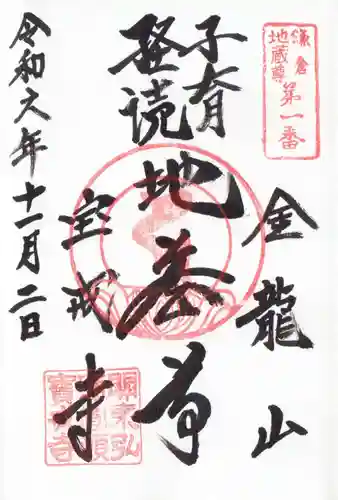 鎌倉
地蔵尊
第一番
金龍山
子育
経読
地蔵尊
宝戒寺
令和六年十一月二日